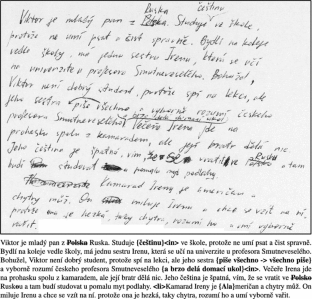 Ruska čeština
Viktor je mladý pan z Polska. Studuje ve škole,
protože na umí psat a čist správně. Bydlí na koleje
vedle školy, má jednu sestru Irenu, která se učí
na univerzite u profesora Smutneveselého. Bohužel,
Viktor není dobrý student, protože spí na lekci, ale
jeho sestra piše všechno a vyborně rozumí českeho
profesora Smutneveselého (a brzo delá domaci ukol). Večeře Irena jde na
prohasku spolu z kamaradem, ale její bratr dělá nic.
Jeho čeština je špatná, vím, že se vratit ve Rusku a tam
budí studovat a pomalu myt podlahy.
Kamarad Ireny je američan, a
chytry muž. On miluje Irenu a chce se vzit na ní.
protože ona je hezká, taky chytra, rozumí ho a umí vyborně
Viktor je mladý pan z Polsko Ruska. Studuje {čeština}<in> ve škole, protože na umí psat a čist správně.
Bydlí na koleje vedle školy, má jednu sestru Irena, která se učí na univerzite u profesora Smutneveselého.
Bohužel, Viktor není dobrý student, protože spí na lekci, ale jeho sestro {piše všechno -> všechno piše}
a vyborně rozumí českeho profesora Smutneveselého {a brzo delá domací ukol}<in>. Večeře Irena jde
na prohasku spolu z kamaradem, ale její bratr dělá nic. Jeho čeština je špatná, vím, že se vratit ve Polsko
Ruskou a tam budí studovat a pomalu myt podlahy. <li>Kamarad Ireny je {A|a}meričan a chytry muž. On
miluje Irenu a chce se vzít na ní. protože ona je hezká, taky chytra, rozumí ho a umí vyborně vařit.